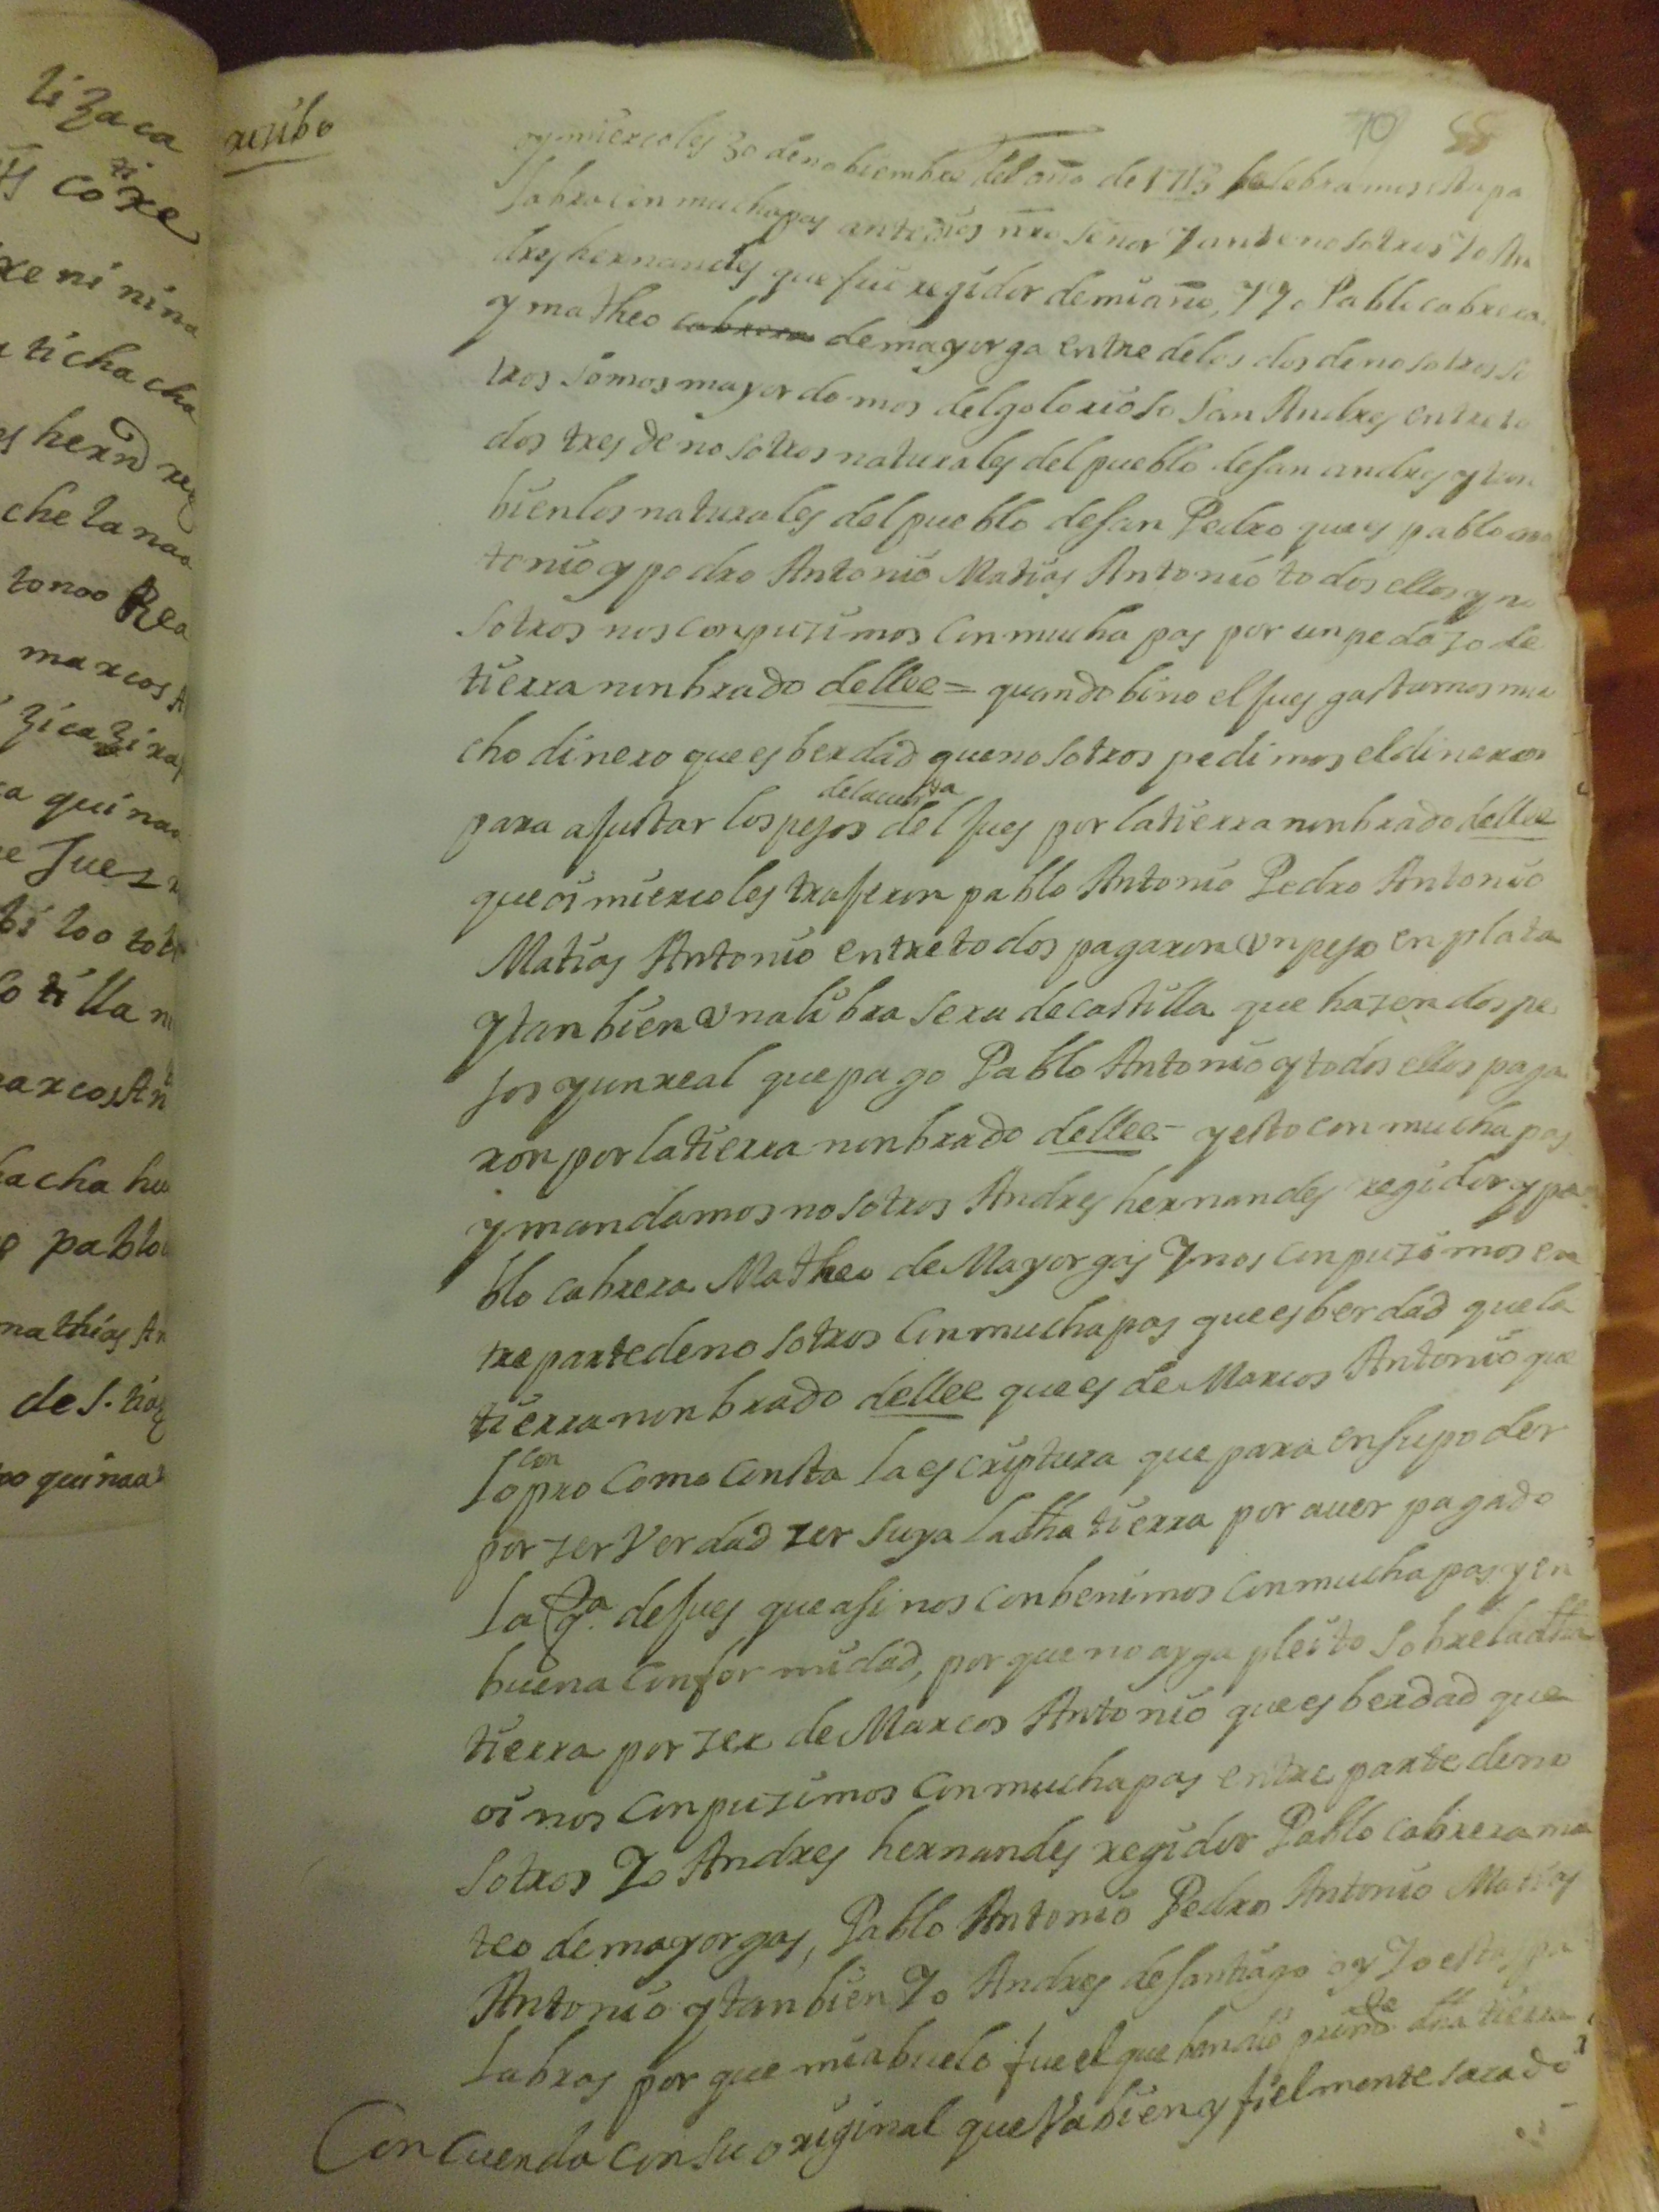 ti Zaca
ti
coxe
xe ni nina
ticha cha
es hernd reg
che la nao
tonoo Rea
marcos A
Zica Zixa
a quinao
Juez
ti too
tilla ni
arcos An
acha hu
pablo
mathias An
de S. tiag
oo quinaa
recibo
70 55
oy miercoles 30 de nobiembre del año de 1713 selebramos esta pa
labra con mucha pas ante dios nro señor Y ante nosotros Yo An
dres hernandes que fui regidor de mi año, Y Yo Pablo cabrera
y matheo cabrera de mayorga entre de los dos de nosotros so
tros somos mayordomos del golorioso San Andres entre to
dos tres de nosotros naturales del pueblo de san andres y tan
bien los naturales del pueblo de san Pedro que es pablo an
tonio y pedro Antonio Matias Antonio todos ellos y no
sotros nos conpuzimos con mucha pas por un pedazo de
tierra nonbrado dellee = quando bino el Jues gastamos mu
cho dinero que es berdad que nosotros pedimos el dinero
de la cuenta
para ajustar los pesos del Jues por la tierra nonbrado dellee
que oi miercoles trajeron pablo Antonio Pedro Antonio
Matias Antonio entre todos pagaron un peso en plata
y tanbien una libra sera de castilla que hazen dos pe
sos y un real que pago Pablo Antonio y todos ellos paga
ron por la tierra nonbrado dellee = y esto con mucha pas
y mandamos nosotros Andres hernandes regidor y pa
blo cabrera Matheo de Mayorgas Y nos conpuzimos en
tre parte de nosotros con mucha pas que es berdad que la
tierra nonbrado dellee que es de Marcos Antonio que
con
lo pro como consta la escriptura que para en su poder
por zer Verdad zer suya la dha tierra por auer pagado
la qa. de Jues que asi nos conbenimos con mucha pas y en
buena conformidad, por que no ayga pleito sobre la dha
tierra por zer de Marcos Antonio que es berdad que
oi nos conpuzimos con mucha pas entre parte de no
sotros Yo Andres hernandes regidor Pablo cabrera ma
teo de mayorgas, Pablo Antonio Pedro Antonio Matias
Antonio y tanbien Yo Andres de santiago oy Yo estas pa
labras por que mi abuelo fue el que bendio dha tierra
Concuenda con su original que Va bien y fielmente sacado